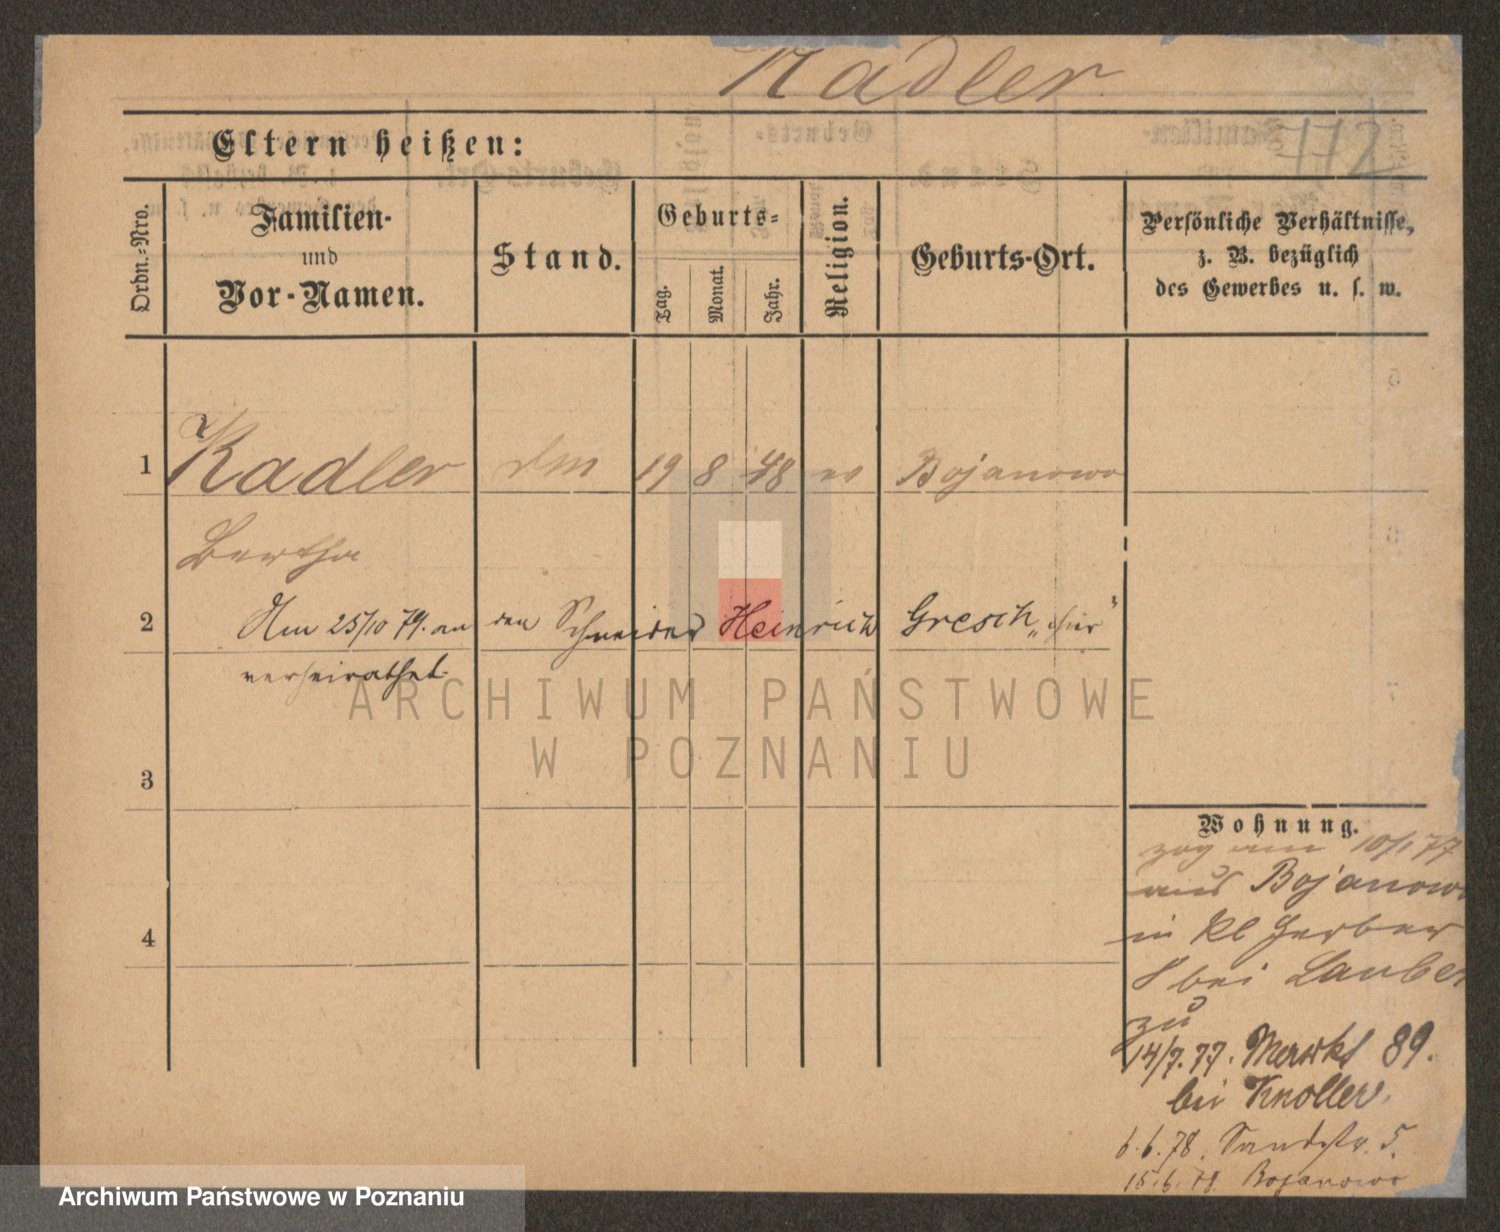 Kadler
772
Eltern heißen:
Ordn.-Nro.
Familien-
und
Vor-Namen.
Stand.
Geburts-
Tag.
Monat.
Jahr.
Religion.
Geburts-Ort.
Persönliche Verhältnisse,
z. B. bezüglich
des Gewerbes u. s. w.
1 Kadler 19 8 48 ev Bojanowo
Bertha
2 Am 25/10 79. an den Schneider Heinrich Gresch „hier“
verheirathet.
3
4
Wohnung.
zog am 10/1 77
aus Bojanowo
in kl Gerber
8 bei Lauber
zu
14/7. 77. Markt 89.
bei Knoller.
6.6.78. Sandstr. 5.
15.6.78. Bojanowo
ARCHIWUM PAŃSTWOWE
W POZNANIU
Archiwum Państwowe w Poznaniu